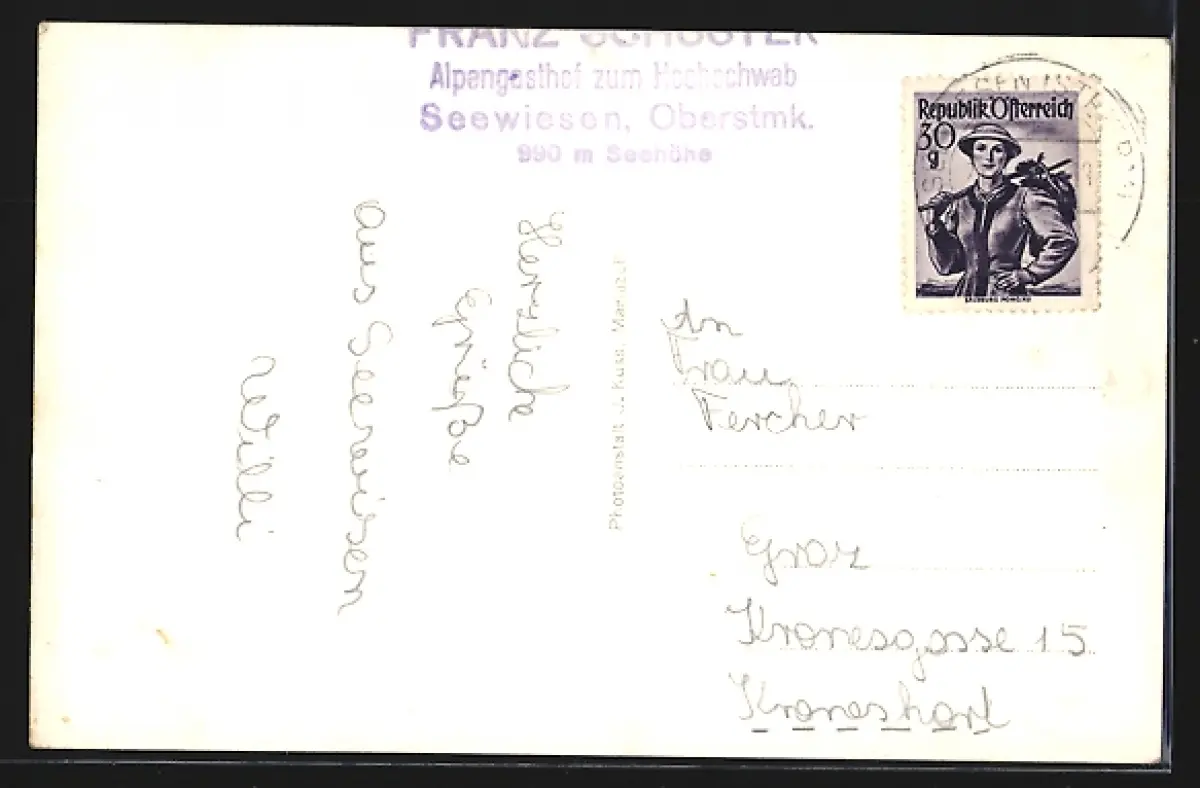 FRANZ SCHUSTER
Alpengasthof zum Hochschwab
Seewiesen, Oberstmk.
990 m Seehöhe
Republik Österreich
30
g
SALZBURG PONGAU
Herzliche
Grüße
aus Seewiesen
Willi
Photoanstalt J. Kuss, Mariazell
An
Frau
Fercher
Graz
Kronesgasse 15